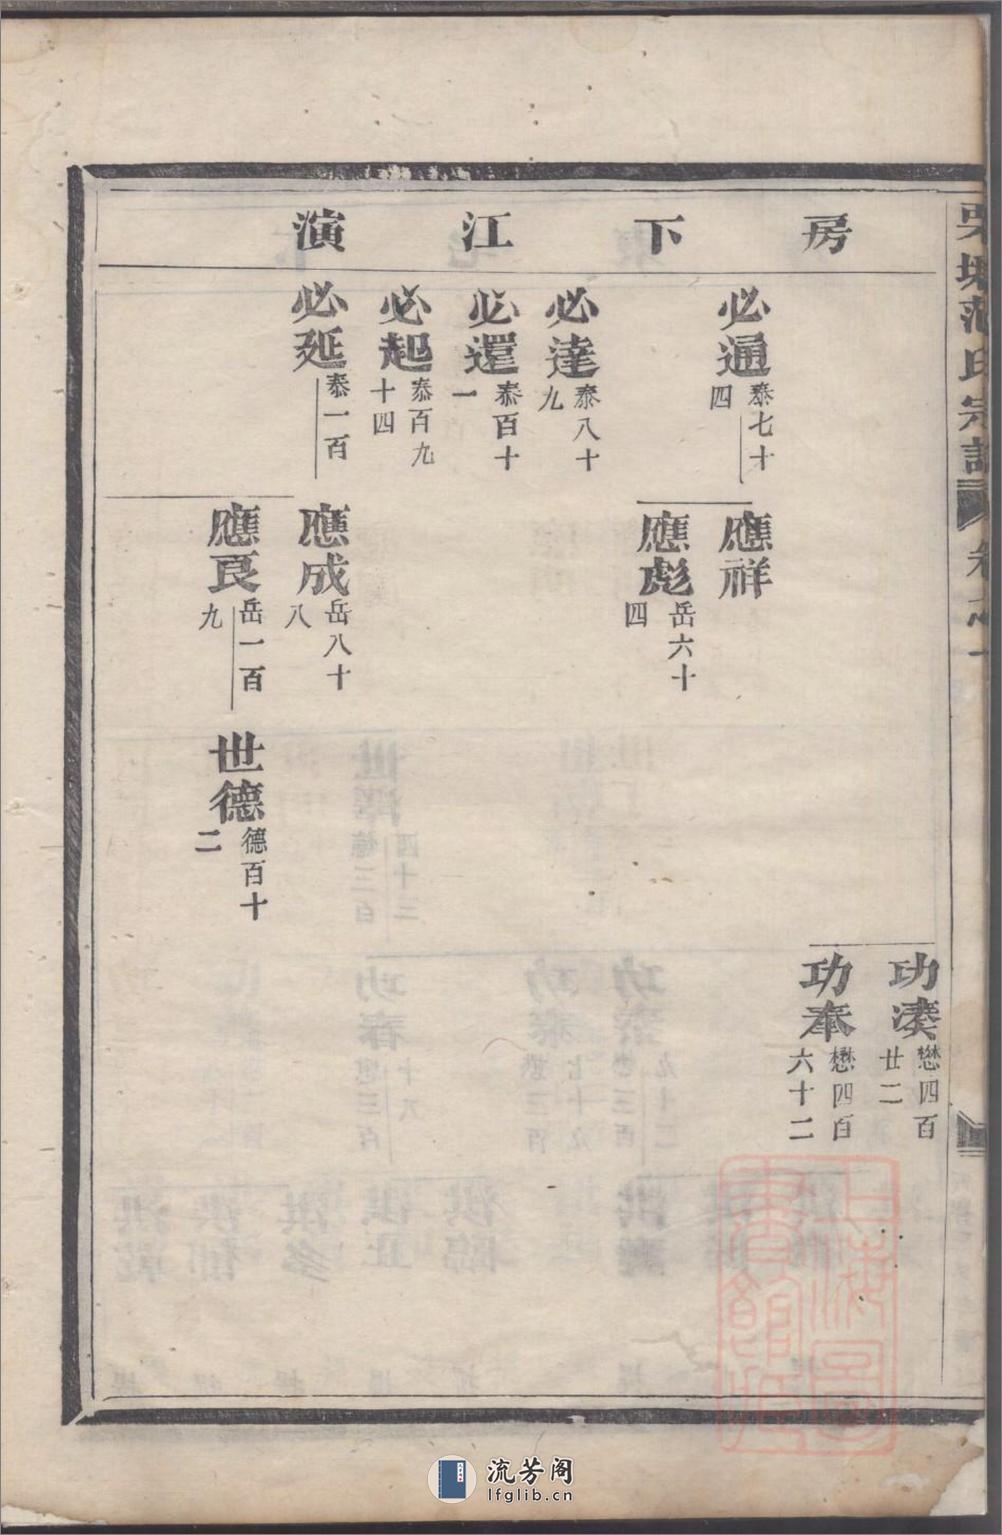 氏宗譜
卷之一
房下江演
功湊 懋四百廿二
功奉 懋四百六十二
必通 泰七十四
應祥
應彪 岳六十四
必達 泰八十九
必還 泰百十一
必起 泰百九十四
必延 泰一百
應成 岳八十八
應良 岳一百九
世德 德百十二
流芳阁
lfglib.cn